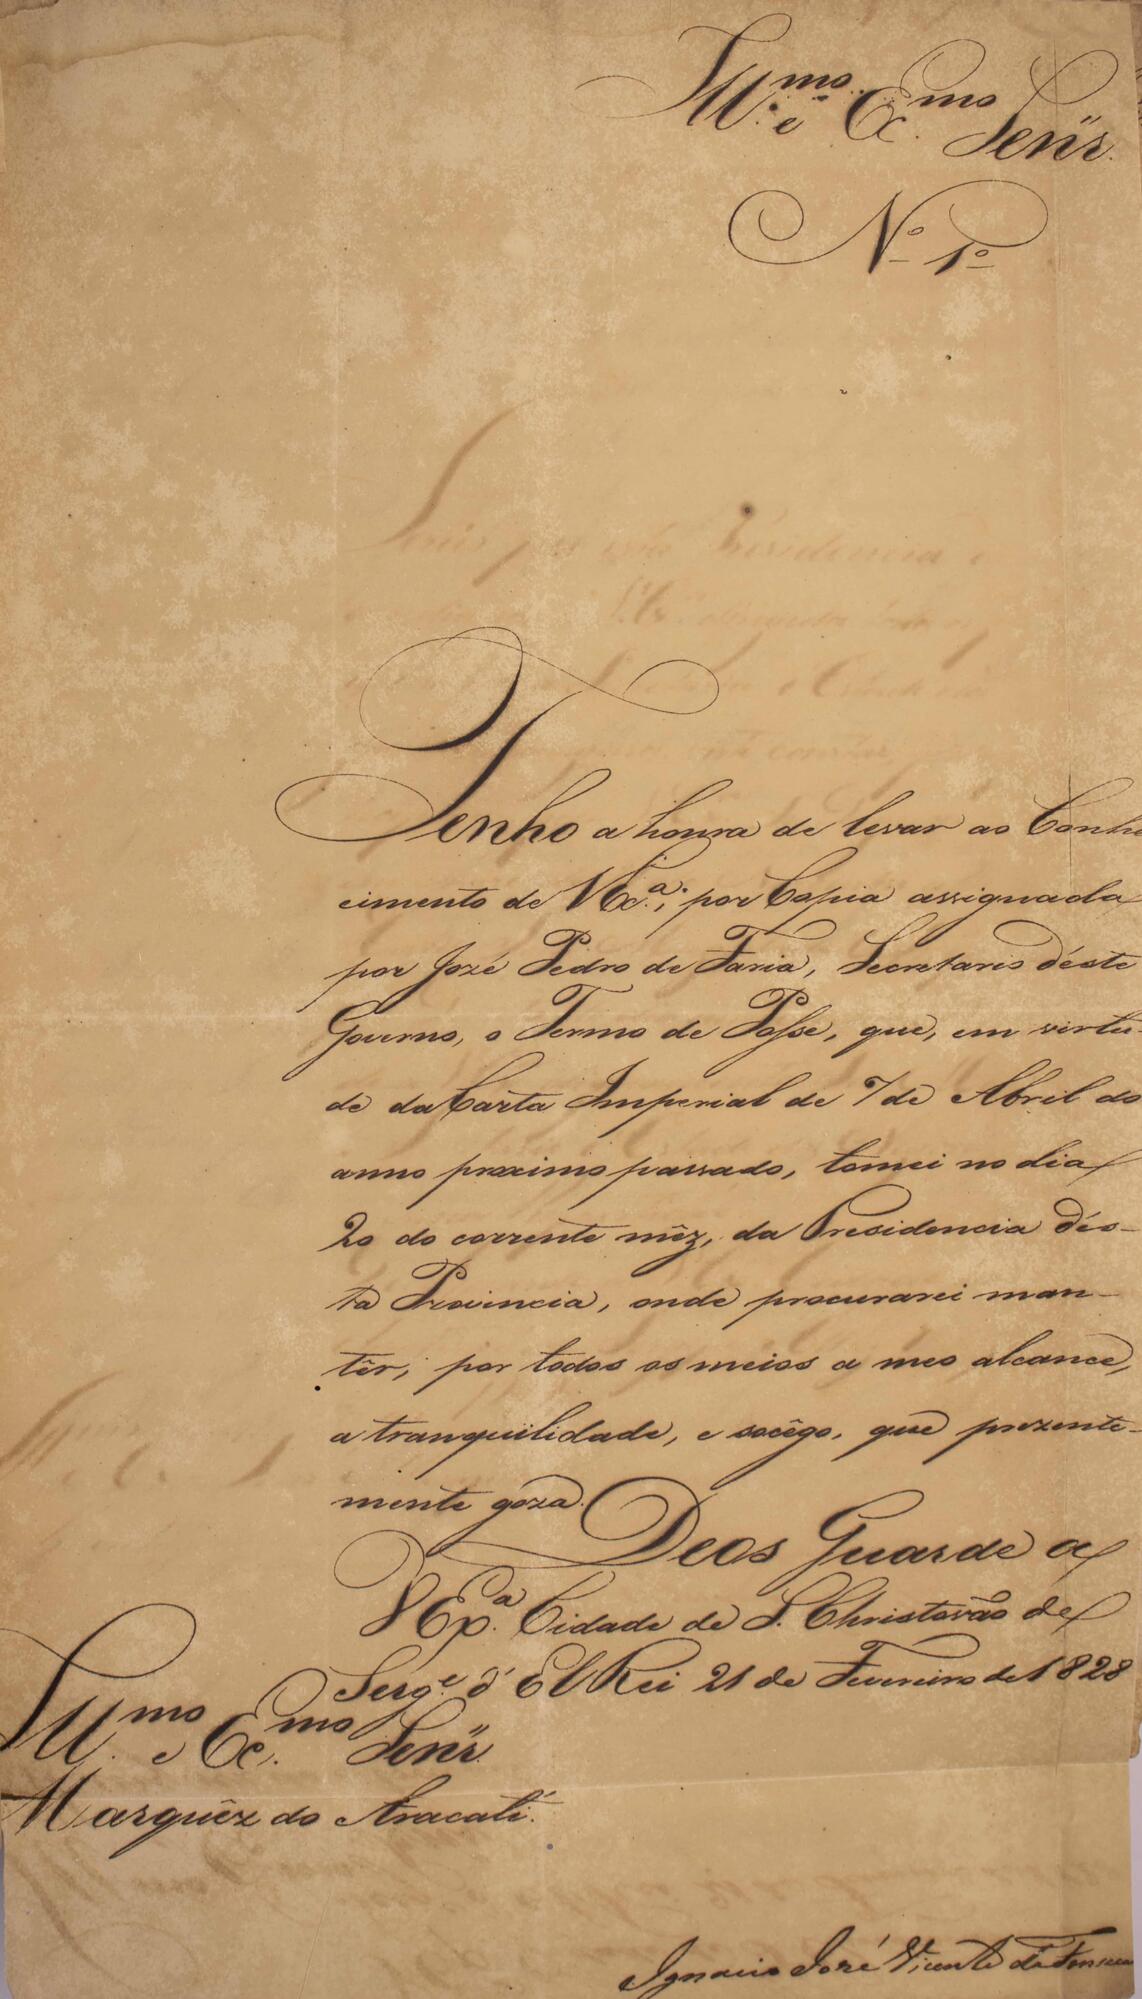 Illmo. e Exmo. Senr.
No. 1o
Tenho a honra de levar ao Conhe
cimento de V Exa.; por Copia assignada
por Jozé Pedro de Faria, Secretario déste
Governo, o Termo de Posse, que, em virtu-
de da Carta Imperial de 7 de Abril do
anno proximo passado, tomei no dia
20 do corrente mêz, da Presidencia dés-
ta Provincia, onde procurarei man-
têr, por todos os meios a meo alcance,
a tranquilidade, e socêgo, que prezente-
mente góza. Deos Guarde a
V Exa. Cidade de S. Christovão de
Serge. d' El Rei 21 de Fevereiro de 1828
Illmo. e Exmo. Senr.
Marquêz do Aracati.
Ignacio José Vicente da Fonseca